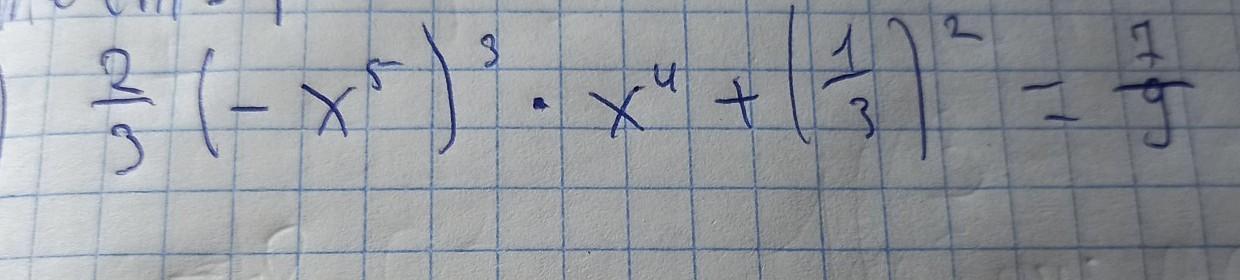 2/3 (-x⁵)³ · x⁴ + (1/3)² = 7/9